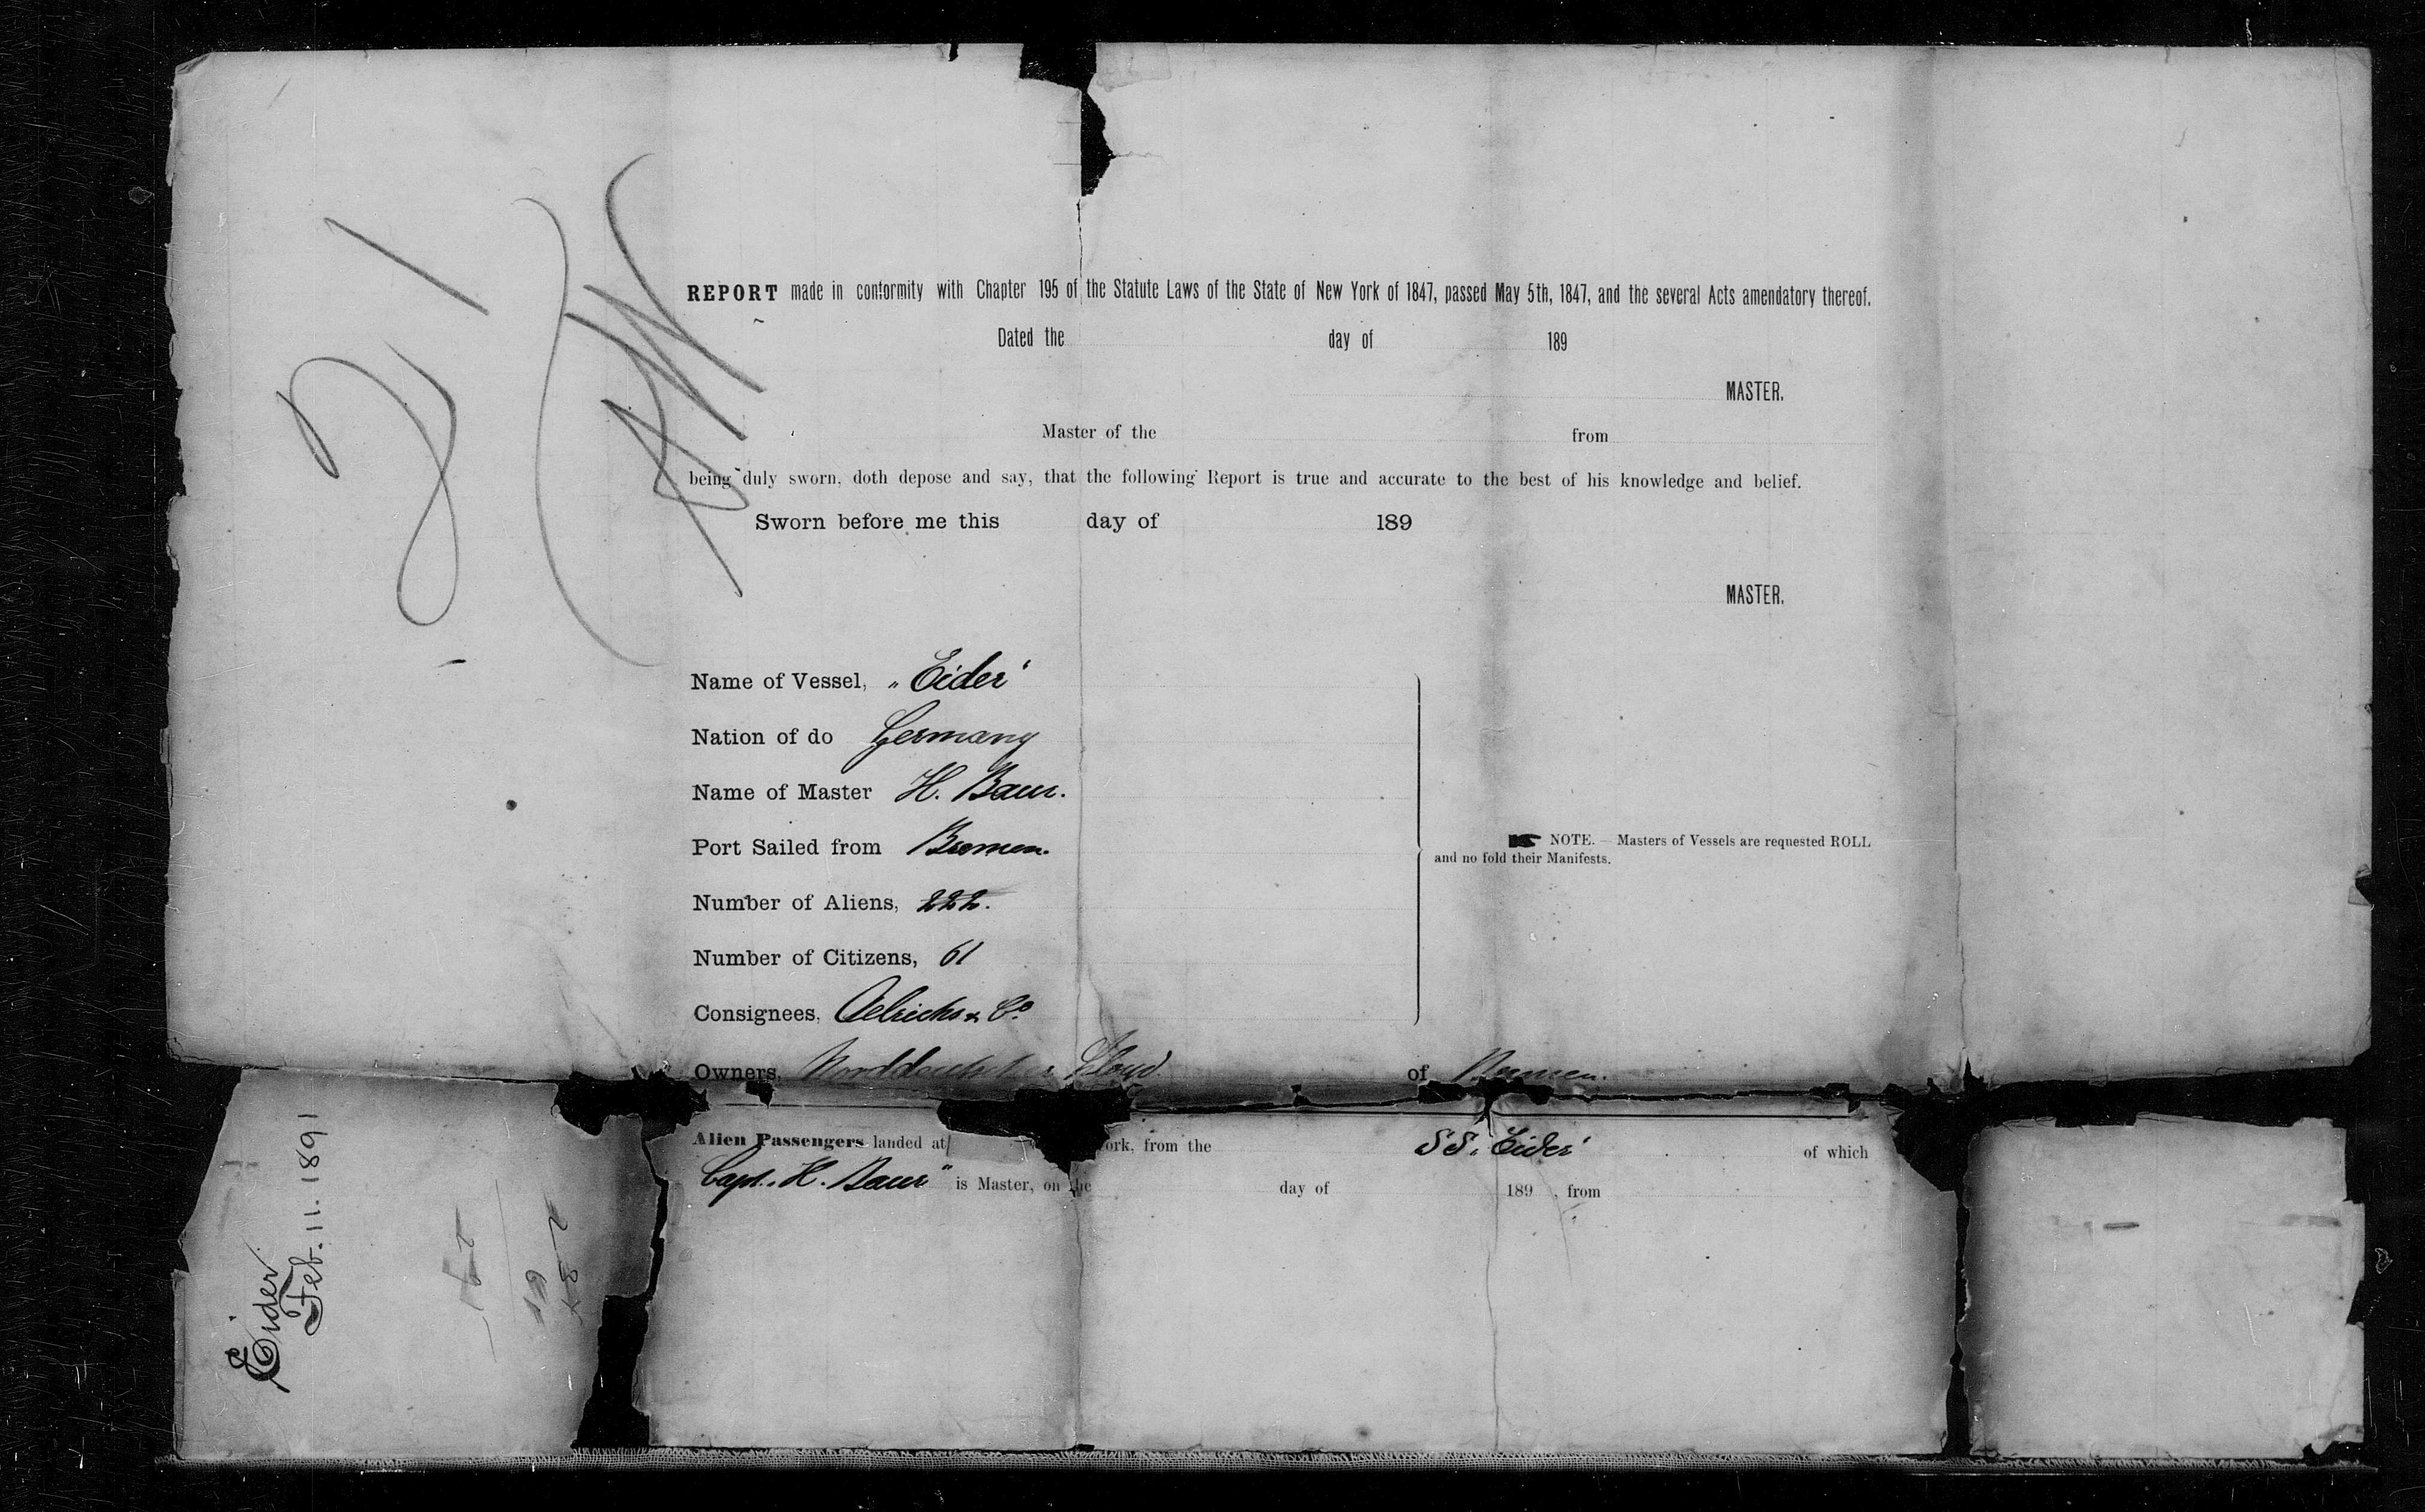 REPORT made in conformity with Chapter 195 of the Statute Laws of the State of New York of 1847, passed May 5th, 1847, and the several Acts amendatory thereof.
Dated the day of 189
MASTER.
Master of the from
being duly sworn, doth depose and say, that the following Report is true and accurate to the best of his knowledge and belief.
Sworn before me this day of 189
MASTER.
Name of Vessel, „Eider"
Nation of do Germany
Name of Master H. Baur.
Port Sailed from Bremen.
Number of Aliens, 222.
Number of Citizens, 61
Consignees, Oelrichs & Co
Owners, Norddeutscher Lloyd of Bremen.
NOTE. — Masters of Vessels are requested ROLL
and no fold their Manifests.
Alien Passengers landed at ork, from the SS. Eider of which
Capt. H. Baur is Master, on the day of 189 , from
Eider
Feb. 11. 1891